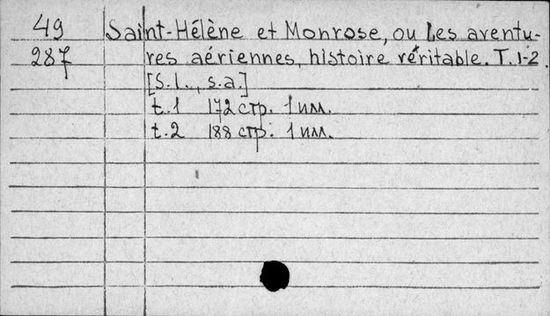 49 Saint-Hélène et Monrose, ou Les aventu-
287 res aériennes, histoire véritable. T. 1-2.
[S.l., s.a.]
t.1 172 стр. 1 илл.
t.2 188 стр. 1 илл.